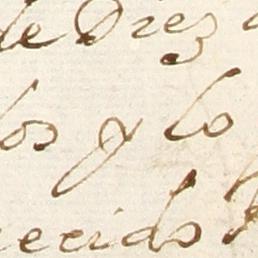 de Diez
los y lo
recido